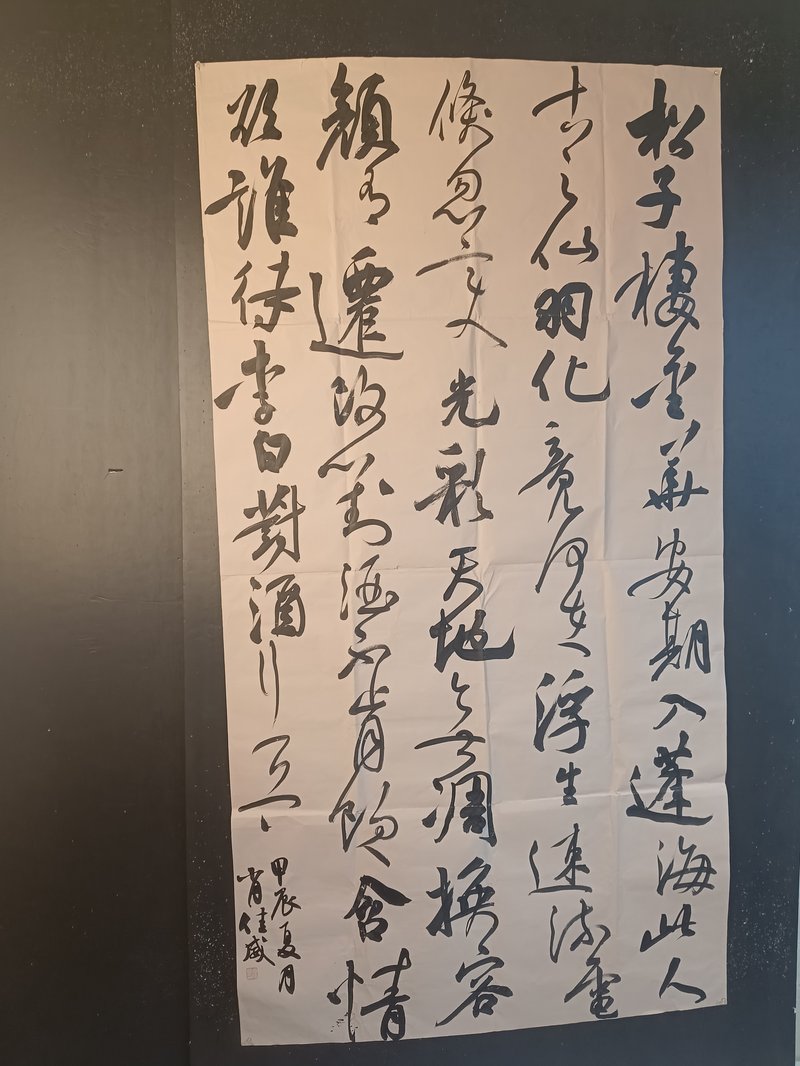 松子棲金華安期入蓬海此人
古之仙羽化竟何在浮生速流電
倏忽變光彩天地無凋換容
顏有遷改對酒不肯飲含情
欲誰待李白對酒行
甲辰夏月
肖佳威